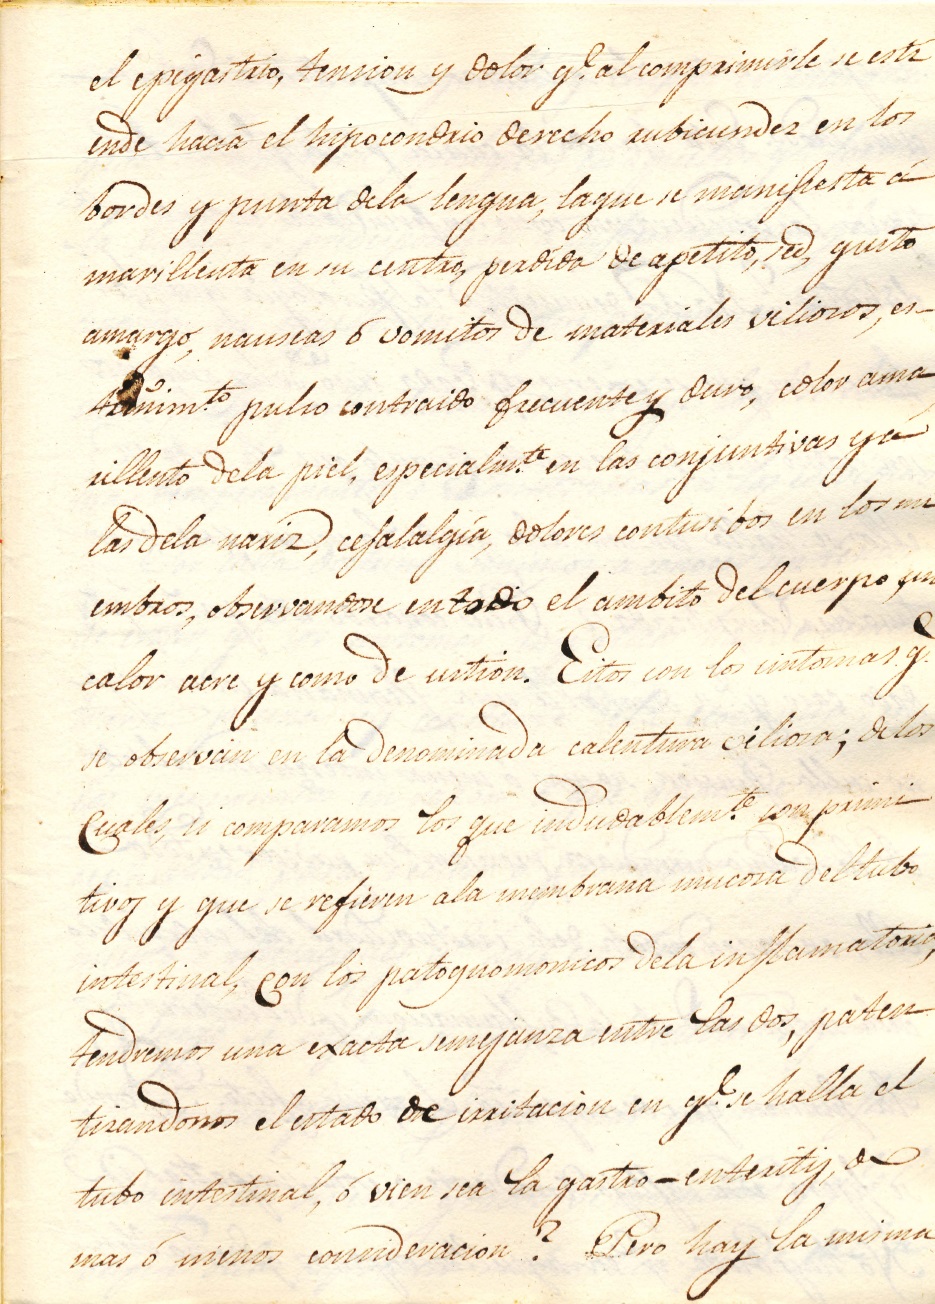 el epigastrio, tension y dolor q.e al comprimirle se esti
ende hacia el hipocondrio derecho rubicundez en los
bordes y punta dela lengua, laque se manifiesta á
marillenta en su centro, perdida de apetito, sed, gusto
amargo, nauseas ó vomitos de materiales viliosos, es-
treñim.to pulso contraido frecuente y duro, color ama
rillento dela piel, especialm.te en las conjuntivas y a
las dela nariz, cefalalgía, dolores contusibos en los mi
embros, observandose en todo el ambito del cuerpo un
calor acre y como de ustion. Estos son los sintomas q.e
se observan en la denominada calentura viliosa; delos
Cuales, si comparamos los que indudablem.te son primi
tivos y que se refieren ala membrana mucosa del tubo
intestinal, con los patognomonicos dela inflamatoria,
tendremos una exacta semejanza entre las dos, paten
tizandonos el estado de irritacion en q.e se halla el
tubo intestinal, ó vien sea la gastro-enteritis, de
mas ó menos consideracion? Pero hay la misma